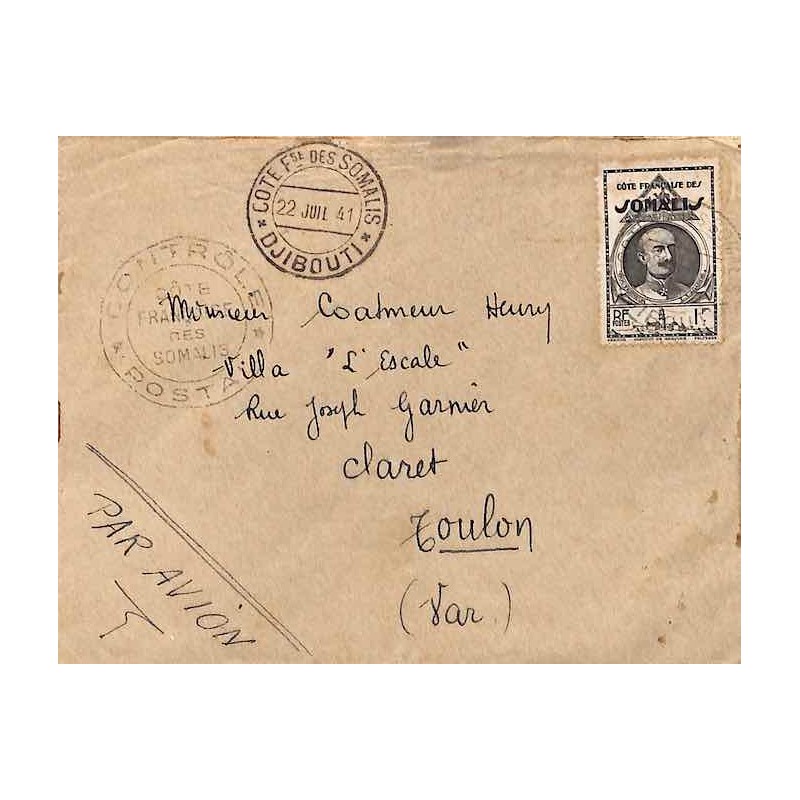 COTE FSE DES SOMALIS
22 JUIL 41
* DJIBOUTI *
CÔTE FRANÇAISE DES
SOMALIS
RF
POSTES
1F
CONTRÔLE
CÔTE
FRANÇAISE
DES
SOMALIS
* POSTAL *
Monsieur Coatmeur Henry
Villa "L'Escale"
Rue Joseph Garnier
Claret
Toulon
(Var.)
PAR AVION